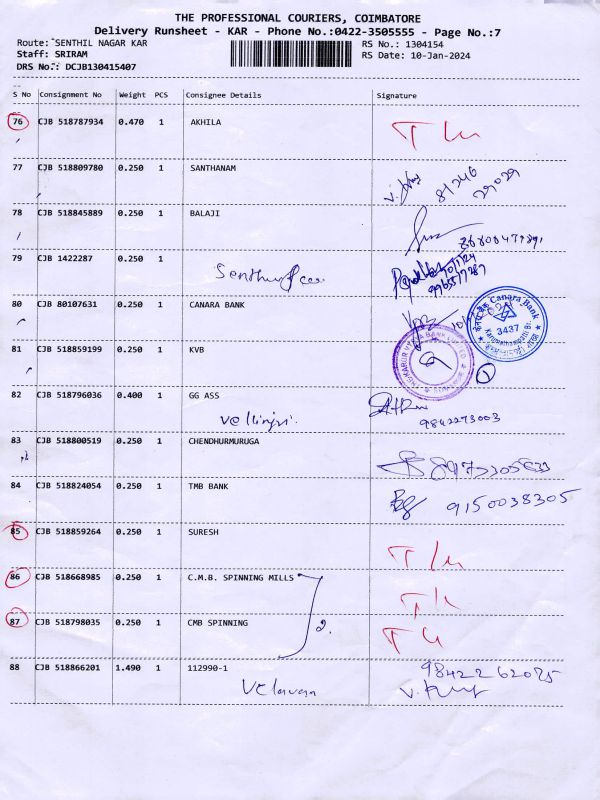 THE PROFESSIONAL COURIERS, COIMBATORE
Delivery Runsheet - KAR - Phone No.:0422-3505555 - Page No.:7
Route: SENTHIL NAGAR KAR
RS No.: 1304154
Staff: SRIRAM
RS Date: 10-Jan-2024
DRS No.: DCJB130415407
S No Consignment No Weight PCS Consignee Details Signature
76 CJB 518787934 0.470 1 AKHILA
77 CJB 518809780 0.250 1 SANTHANAM
81246
29029
78 CJB 518845889 0.250 1 BALAJI
79 CJB 1422287 0.250 1
80 CJB 80107631 0.250 1 CANARA BANK
Canara Bank
3437
81 CJB 518859199 0.250 1 KVB
82 CJB 518796036 0.400 1 GG ASS
9842273003
83 CJB 518800519 0.250 1 CHENDHURMURUGA
84 CJB 518824054 0.250 1 TMB BANK
9150038305
85 CJB 518859264 0.250 1 SURESH
86 CJB 518668985 0.250 1 C.M.B. SPINNING MILLS
87 CJB 518798035 0.250 1 CMB SPINNING
2.
88 CJB 518866201 1.490 1 112990-1
Velavan